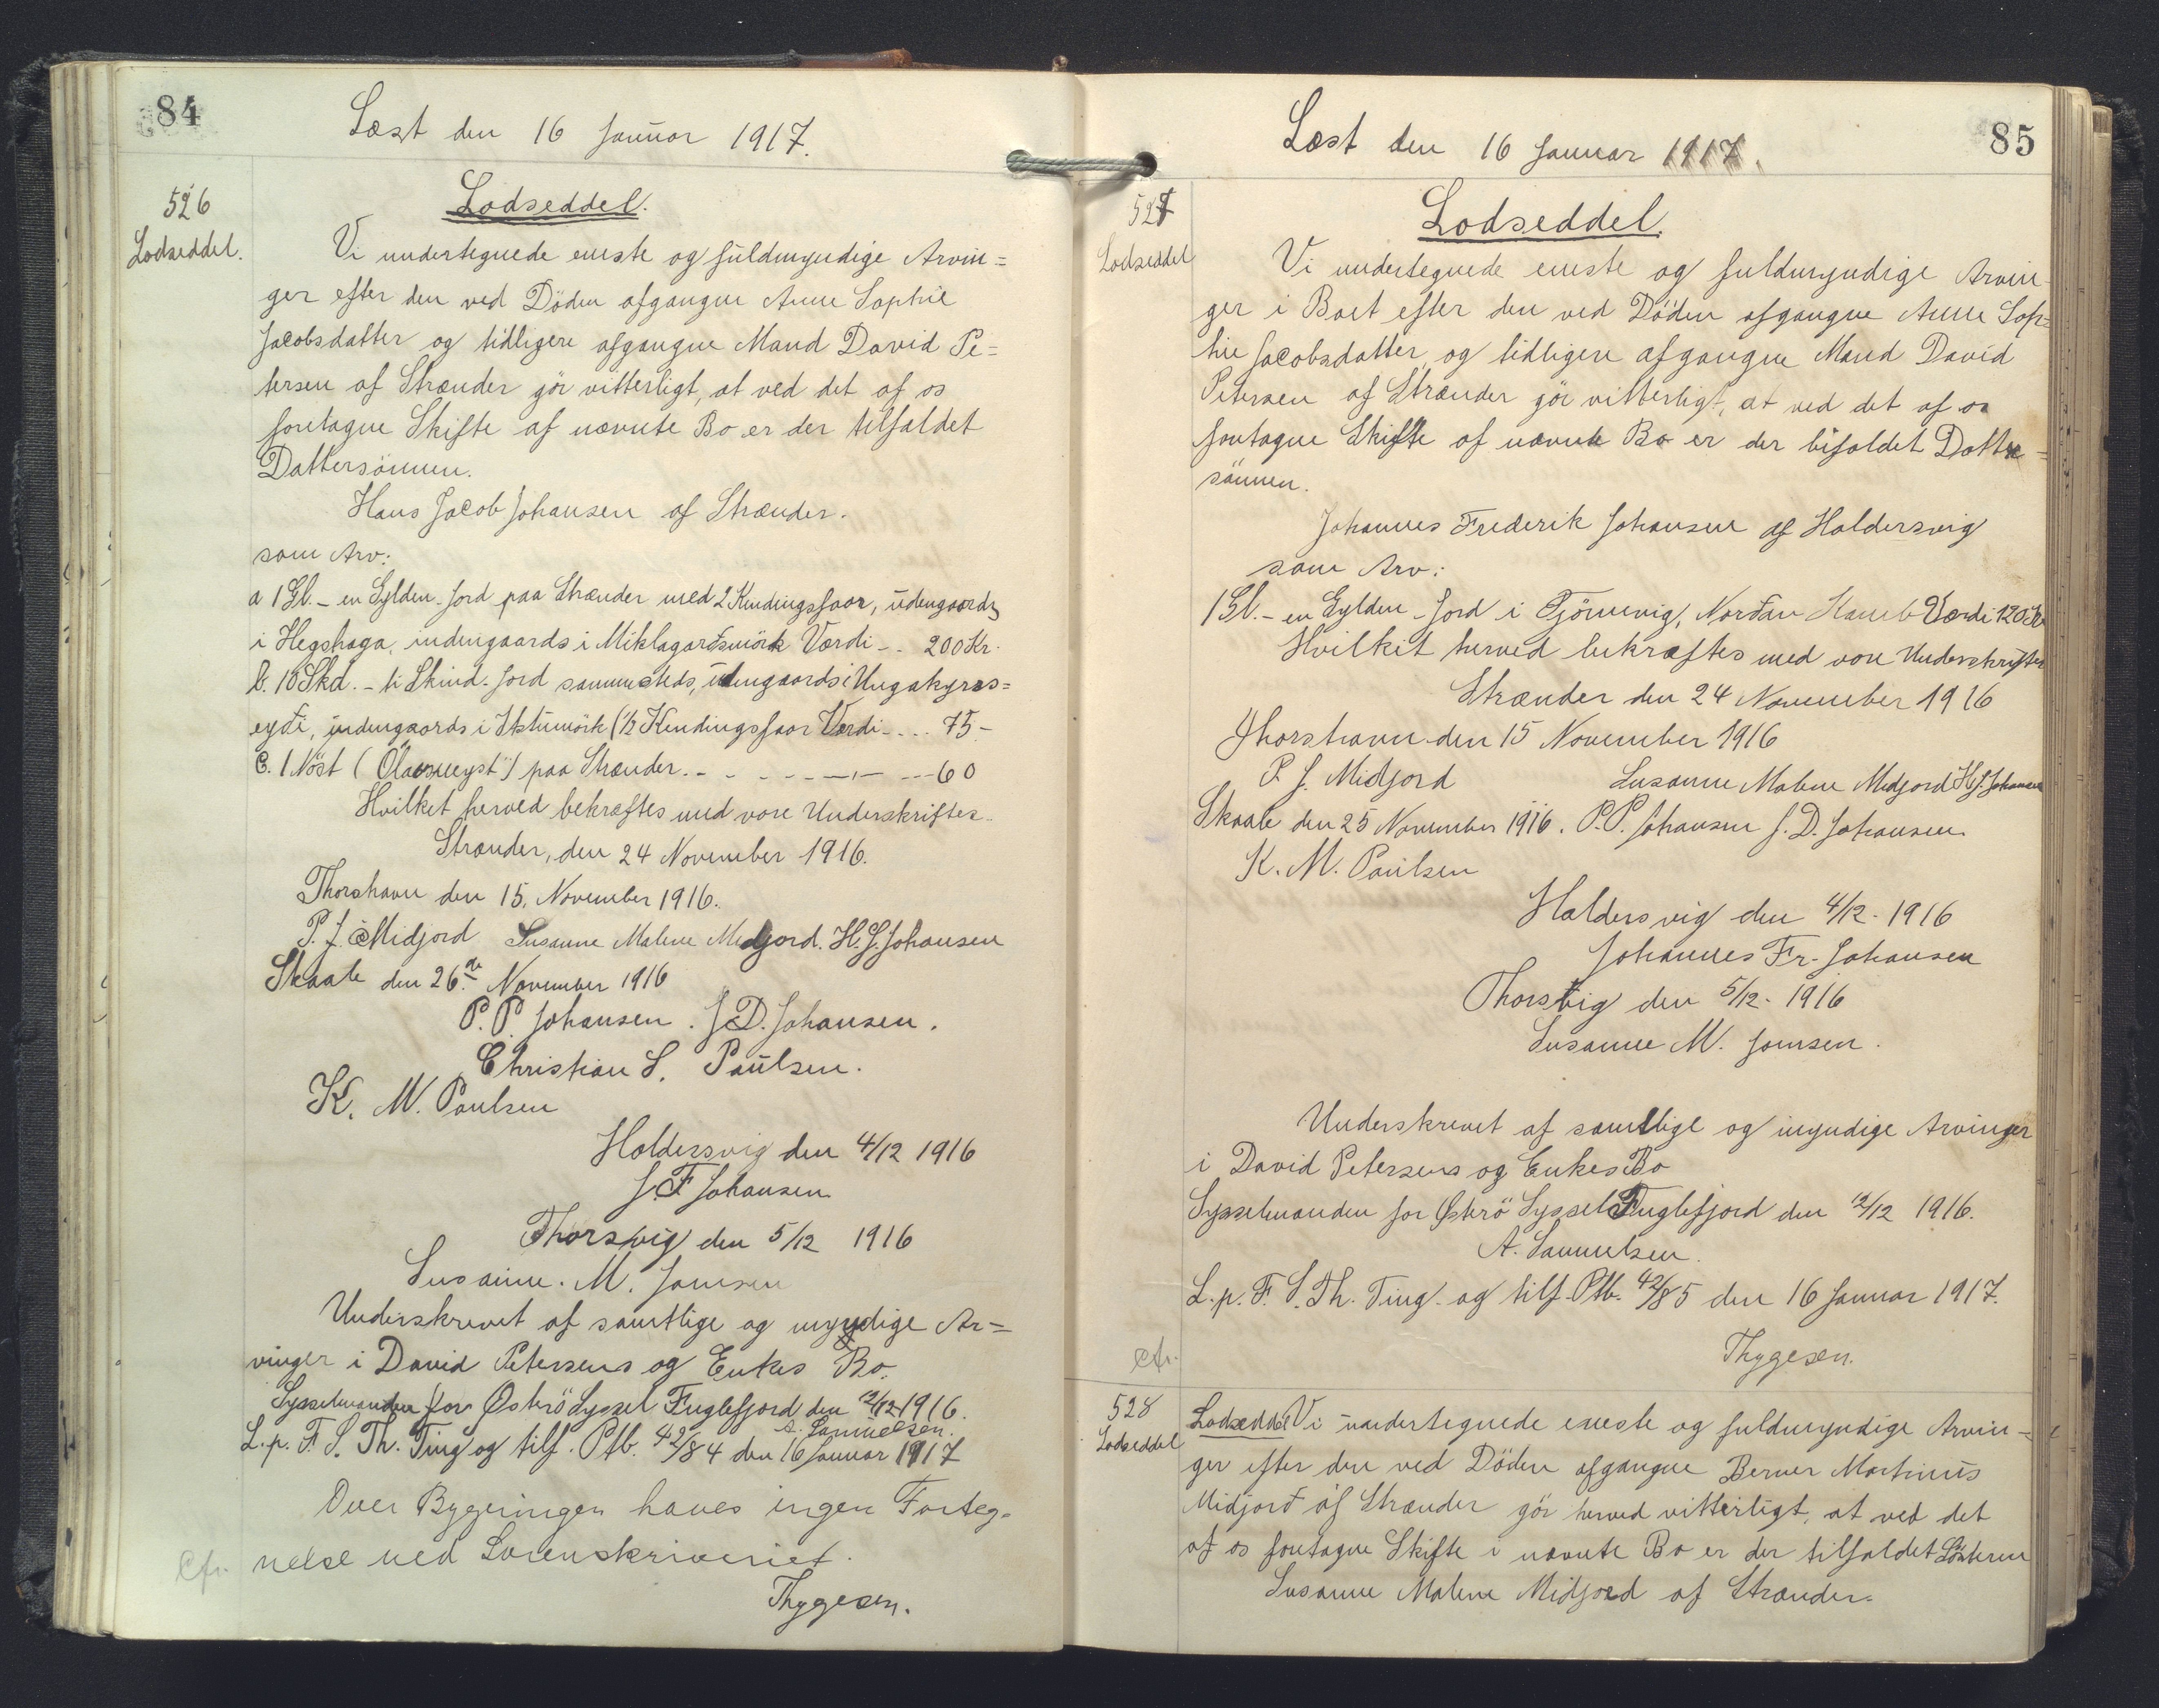 84
Læst den 16 Januar 1917.
526
Lodseddel.
Lodseddel.
Vi undertegnede eneste og fuldmyndige Arvin=
ger efter den ved Döden afgangne Anne Sophie
Jacobsdatter og tidligere afgangne Mand David Pe=
tersen af Strænder gör vitterligt, at ved det af os
foretagne Skifte af nævnte Bo er der tilfaldet
Dattersönnen.
Hans Jacob Johansen af Strænder.
som Arv:
a 1 Gl. - en Gylden - Jord paa Strænder med 2 Kendingsfaar, udengaards
i Hegshaga, indengaards i Miklagardsmörk Værdi - . 200 Kr.
b. 10 Skd. - ti Skind - Jord sammesteds, udengaards i Ungakyrs=
eydi, indengaards i Ytstumörk (½ Kendingsfaar Værdi - . . . 75 -
C. 1 Nöst ( paa Strænder. - - - - - - - 60
Hvilket herved bekræftes med vore Underskrifter.
Strænder, den 24 November 1916.
Thorshavn den 15. November 1916.
P. J. Midjord Susanne Malene Midjord. H. J. Johansen
Skaale den 26de November 1916
P. P. Johansen . J. D. Johansen.
Christian S. Paulsen.
K. M. Paulsen
Haldersvig den 4/12 1916
J. F Johansen
Thorsvig den 5/12 1916
Susanne. M. Joensen
Underskrevet af samtlige og myndige Ar=
vinger i David Petersens og Enkes Bo.
Sysselmanden for Österö Syssel Fuglefjord den 12/12 1916.
A. Samuelsen.
L. p. F. S. Th. Ting og tilf. Ptb. 42/84 den 16 Januar 1917
Over Bygningen haves ingen Forteg-
nelse ved Sorenskriveriet.
Cfr.
Thygesen.
85
Læst den 16 Januar 1917.
527
Lodseddel
Lodseddel.
Vi undertegnede eneste og fuldmyndige Arvin
ger i Boet efter den ved Döden afgangne Anne Sop=
hie Jacobsdatter, og tidligere afgangne Mand David
Petersen af Strænder gör vitterligt, at ved det af os
foretagne Skifte af nævnte Bo er der tilfaldet Datter=
sönnen.
Johannes Frederik Johansen af Haldersvig
som Arv:
1 Gl. - en Gylden - Jord i Tjörnevig, Nordan Værdi 120 Kr
Hvilket herved bekræftes med vore Underskrifter
Strænder den 24 November 1916
Thorshavn den 15 November 1916
P. J. Midjord Susanne Malene Midjord H. J. Johansen
Skaale den 25 November 1916. P. P. Johansen J. D. Johansen
K. M. Paulsen
Haldersvig den 4/12 - 1916
Johannes Fr. Johansen
Thorsvig den 5/12 - 1916
Susanne M. Joensen.
Underskrevet af samtlige og myndige Arvinger
i David Petersens og Enkes Bo
Sysselmanden for Österö Syssel Fuglefjord den 12/12 1916.
A. Samuelsen.
L. p. F. S. Th. Ting og tilf. Ptb. 42/85 den 16 Januar 1917.
Cfr.
Thygesen.
528
Lodseddel
Lodseddel Vi undertegnede eneste og fuldmyndige Arvin=
ger efter den ved Döden afgangne Berner Martinus
Midjord af Strænder gör herved vitterligt, at ved det
af os foretagne Skifte i nævnte Bo er der tilfaldet Sösteren
Susanne Malene Midjord af Strænder.